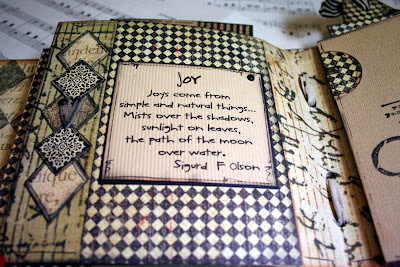 joy
Joys come from
simple and natural things...
Mists over the shadows,
sunlight on leaves,
the path of the moon
over water.
Sigurd F Olson